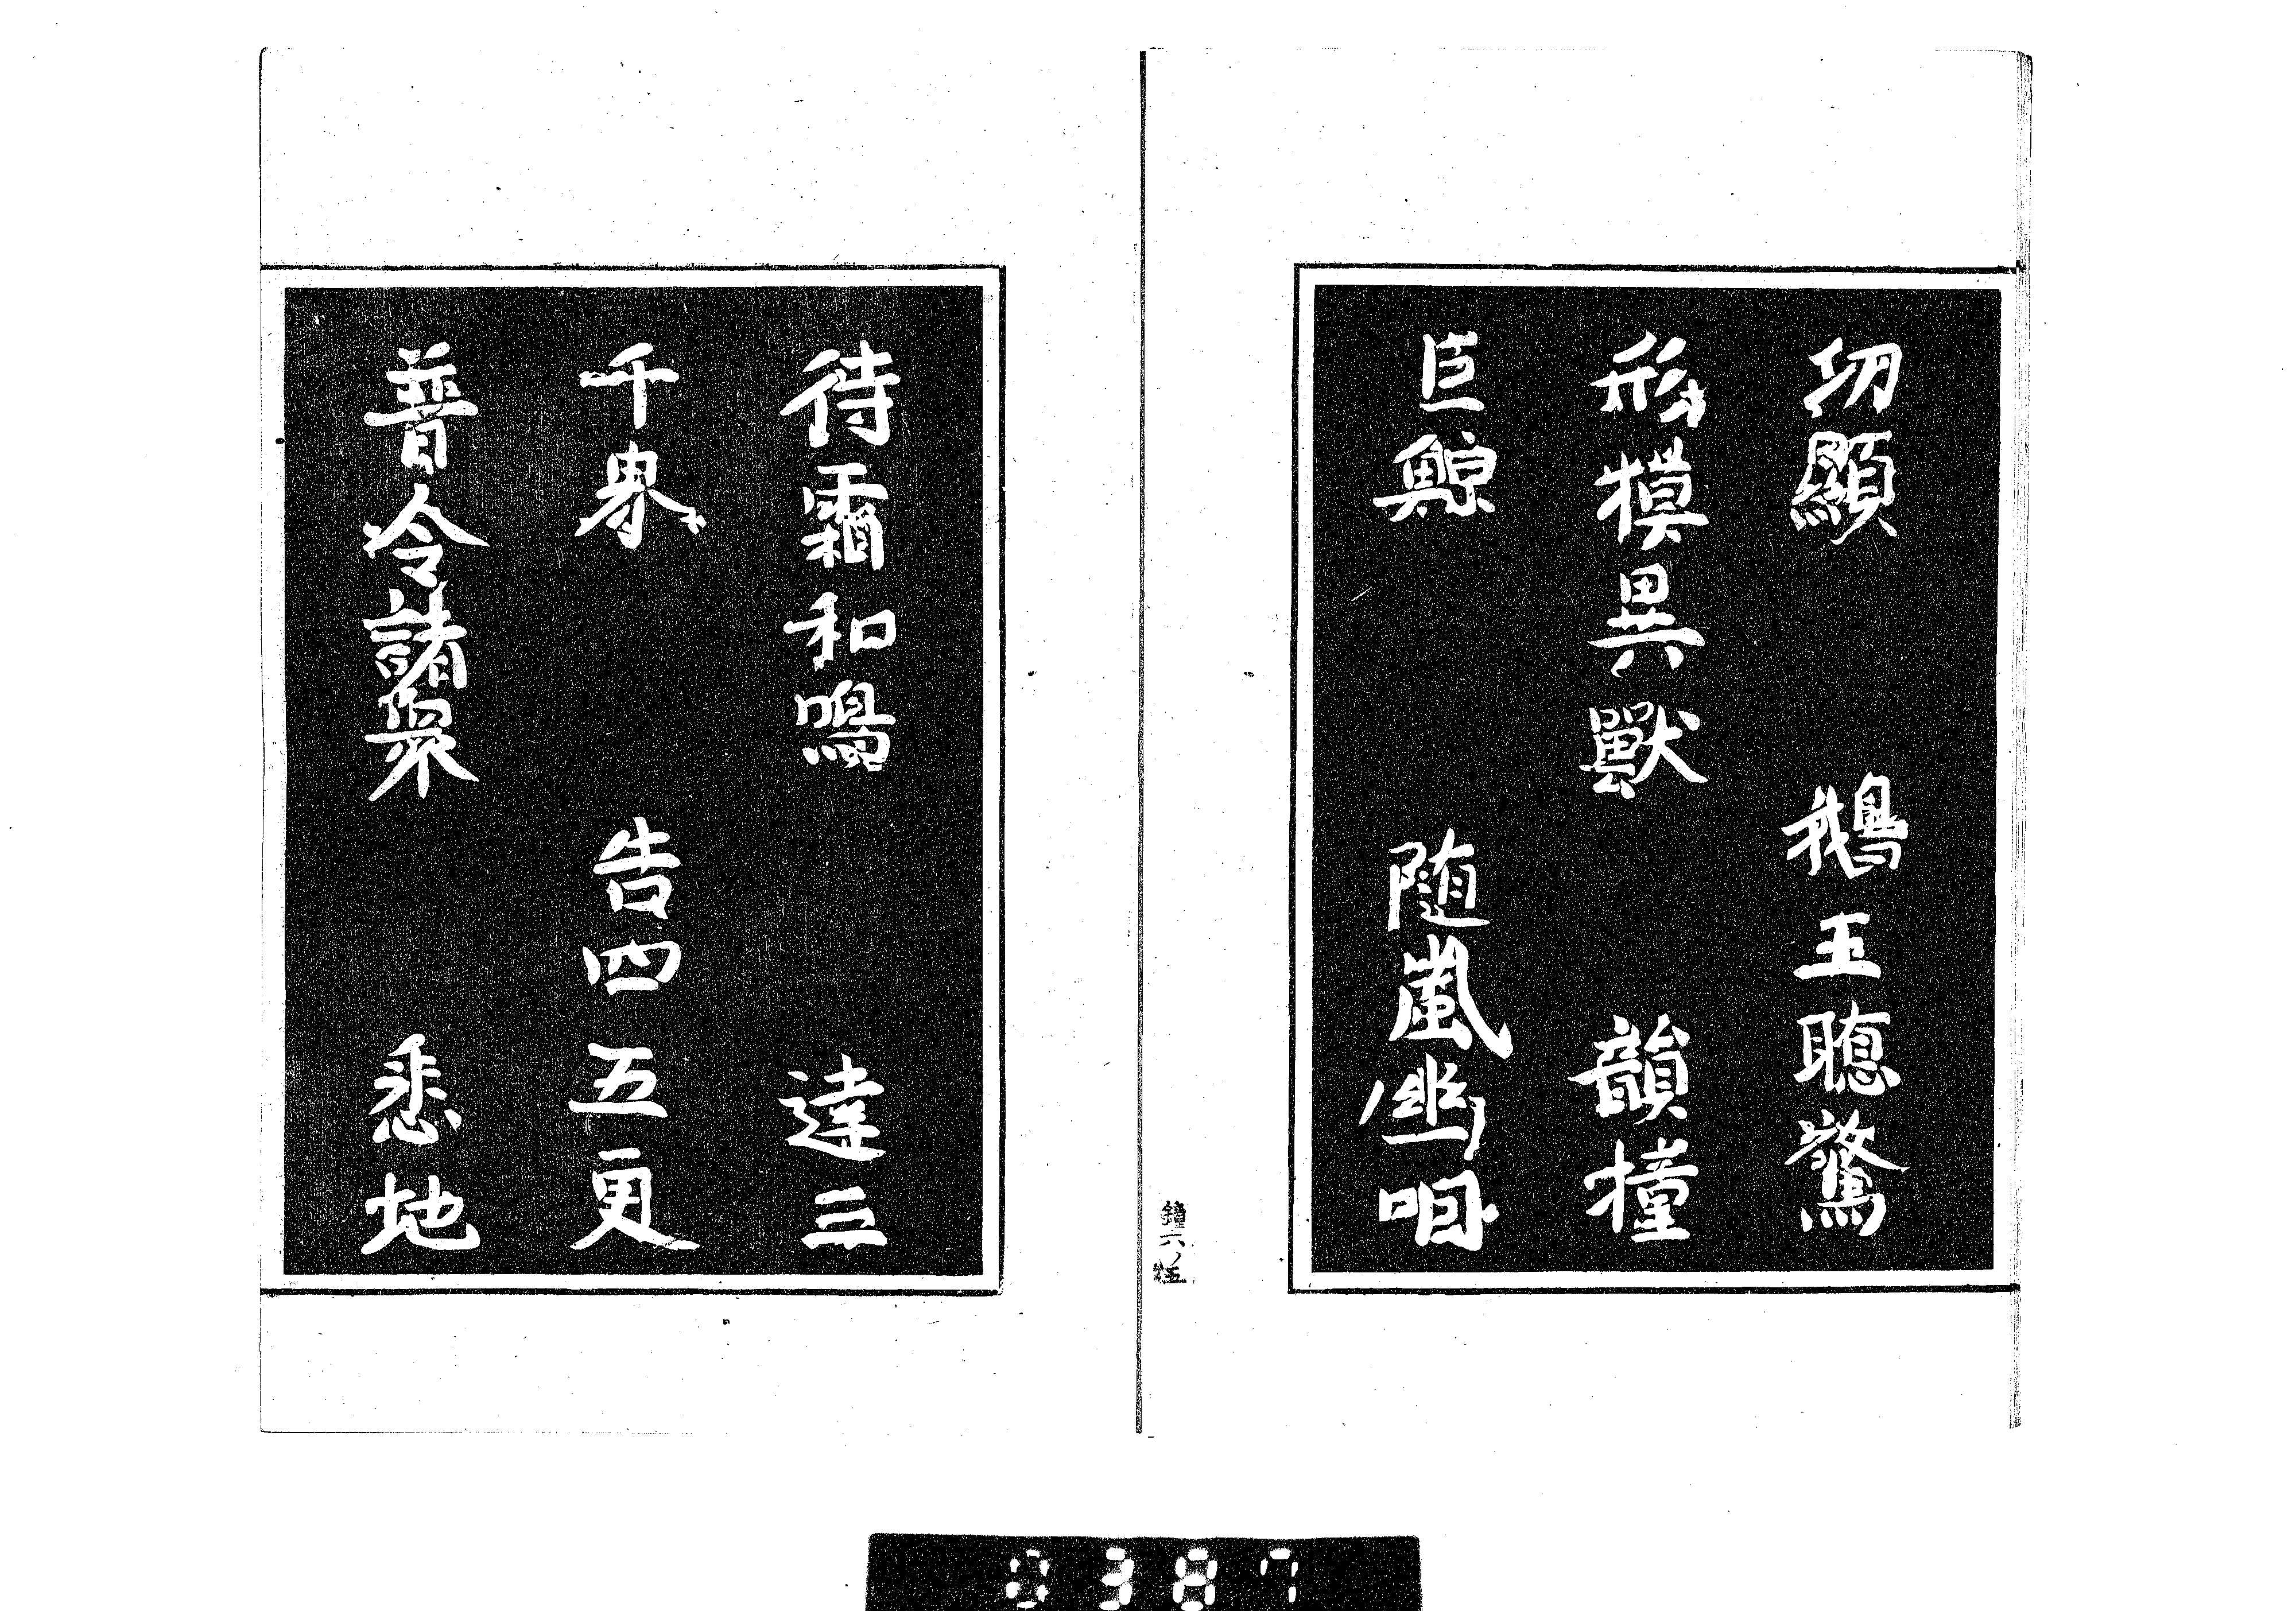 功顯 鵝王聽驚
形摸異獸 韻撞
巨鯨 随嵐幽咽
鐘六ノ五
待霜和鳴 達三
千界 告四五更
普令諸衆 悉地
0387